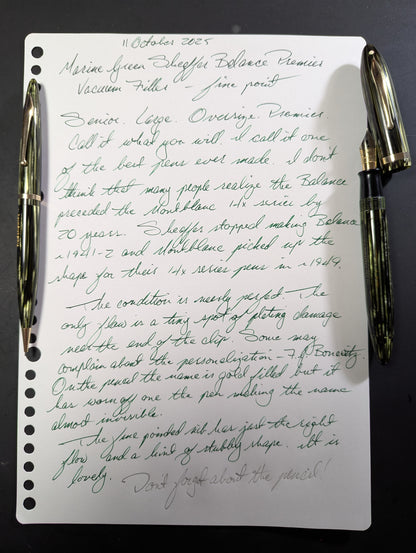 11 October 2025
Marine Green Sheaffer Balance Premier
Vacuum Filler - fine point
Senior. Large. Oversize. Premier.
Call it what you will, I call it one
of the best pens ever made. I don't
think that many people realize the Balance
preceded the Montblanc 14x series by
20 years. Sheaffer stopped making Balance
~1941-2 and Montblanc picked up the
shape for their 14x series pens in ~1949.
The condition is nearly perfect. The
only flaw is a tiny spot of plating damage
near the end of the clip. Some may
complain about the personalization - 7.
On the pencil the name is gold filled but it
has worn off one the pen making the name
almost invisible.
The fine pointed nib has just the right
flow and a kind of stubby shape. It is
lovely. Dont forget about the pencil!